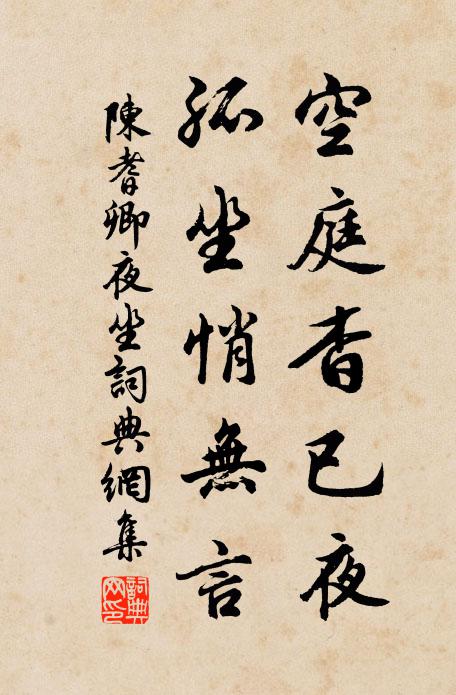 空庭杳已夜
孤坐悄無言
陳耆卿夜坐詞典網集
詞典
网印